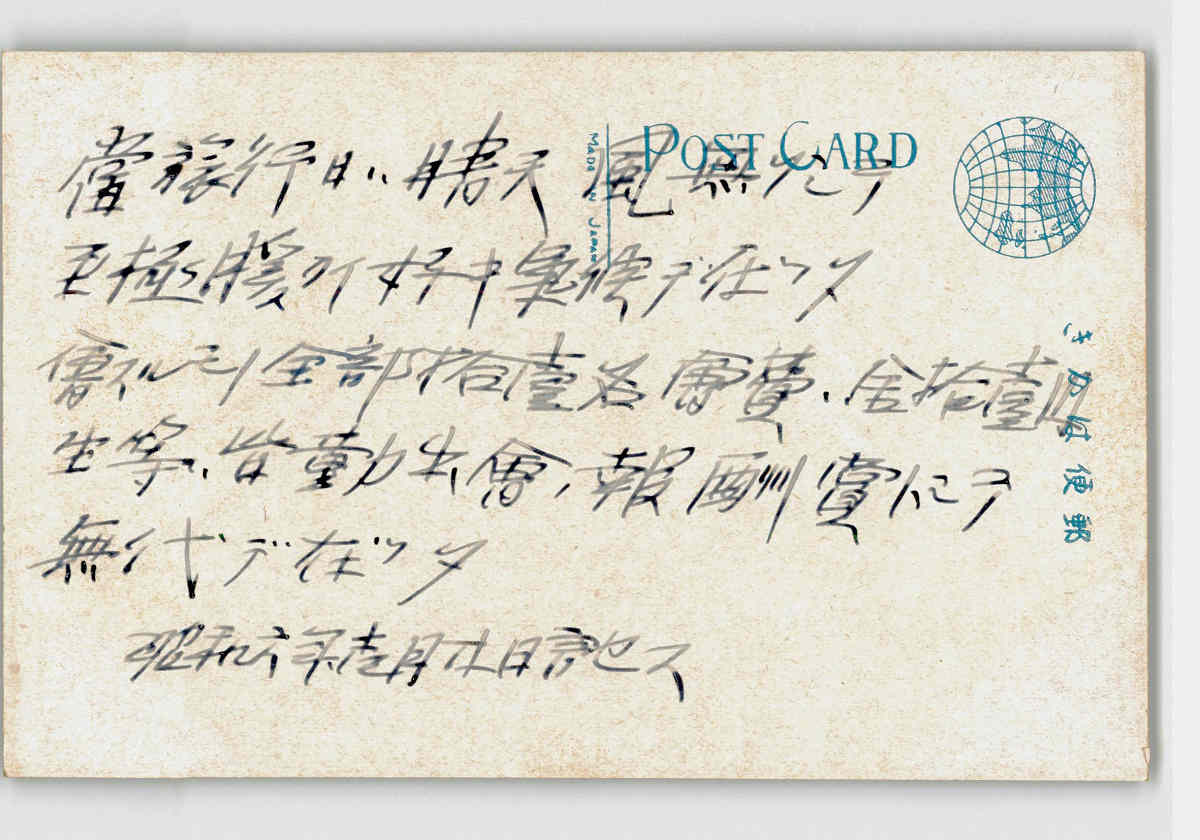 POST CARD
MADE IN JAPAN
郵便はかき
當旅行日ハ晴天風無クシテ
至極暖カイ好キ氣候デ在ツタ
全部拾壹名會費ハ金拾壹圓
等ハ皆勤 會ノ報酬賞ニシテ
無代デ在ツタ
昭和六年壹月 日記セス